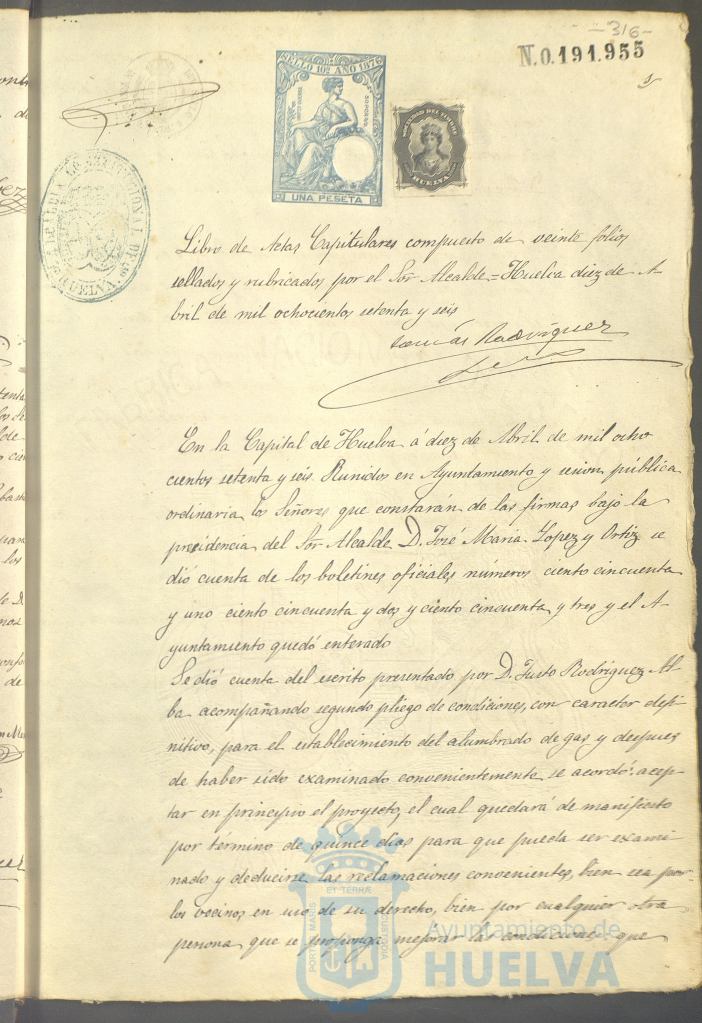 -316-
N.0.191.955
SELLO 10º AÑO 1876
UNA PESETA
HUELVA
ALCALDIA CONSTITUCIONAL DE HUELVA
Libro de Actas Capitulares compuesto de veinte folios
sellados y rubricados por el Sor Alcalde = Huelva diez de A-
bril de mil ochocientos setenta y seis
Tomás Rodríguez
En la Capital de Huelva á diez de Abril de mil ocho
cientos setenta y seis Runidos en Ayuntamiento y sesion pública
ordinaria los Señores que constarán de las firmas bajo la
presidencia del Sor Alcalde D. José Maria Lopez y Ortiz se
dió cuenta de los boletines oficiales números ciento cincuenta
y uno ciento cincuenta y dos y ciento cincuenta y tres y el A-
yuntamiento quedó enterado
Se dió cuenta del escrito presentado por D. Justo Rodriguez Al
ba acompañando segundo pliego de condiciones, con caracter defi-
nitivo, para el establecimiento del alumbrado de gas y despues
de haber sido examinado convenientemente se acordó: acep-
tar en principio el proyecto, el cual quedará de manifiesto
por término de quince dias para que pueda ser exami-
nado y deducirse las reclamaciones convenientes, bien sea por
los vecinos en uso de su derecho, bien por cualquier otra
persona que se proponga mejorar las condiciones que
PORTUS MARIS ET TERRÆ CUSTODIA
Ayuntamiento de
HUELVA